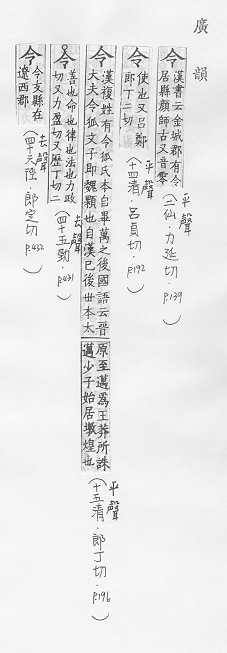 廣韻
令 漢書云金城郡有令
居縣顏師古又音零
平聲
(二仙.力延切.p.139)
令 使也又呂鄭
郎丁二切
平聲
(十四清.呂貞切.p.192)
令 漢複姓有令狐氏本自畢萬之後國語云晉
大夫令狐文子即魏顆也自漢已後世本太
原至邁為王莽所誅
邁少子始居燉煌也
平聲
(十五清.郎丁切.p.196)
令 善也命也律也法也力政
切又力盈切又歷丁切二
去聲
(四十五勁.p.431)
令 令支縣在
遼西郡
去聲
(四十六徑.郎定切.p.432)